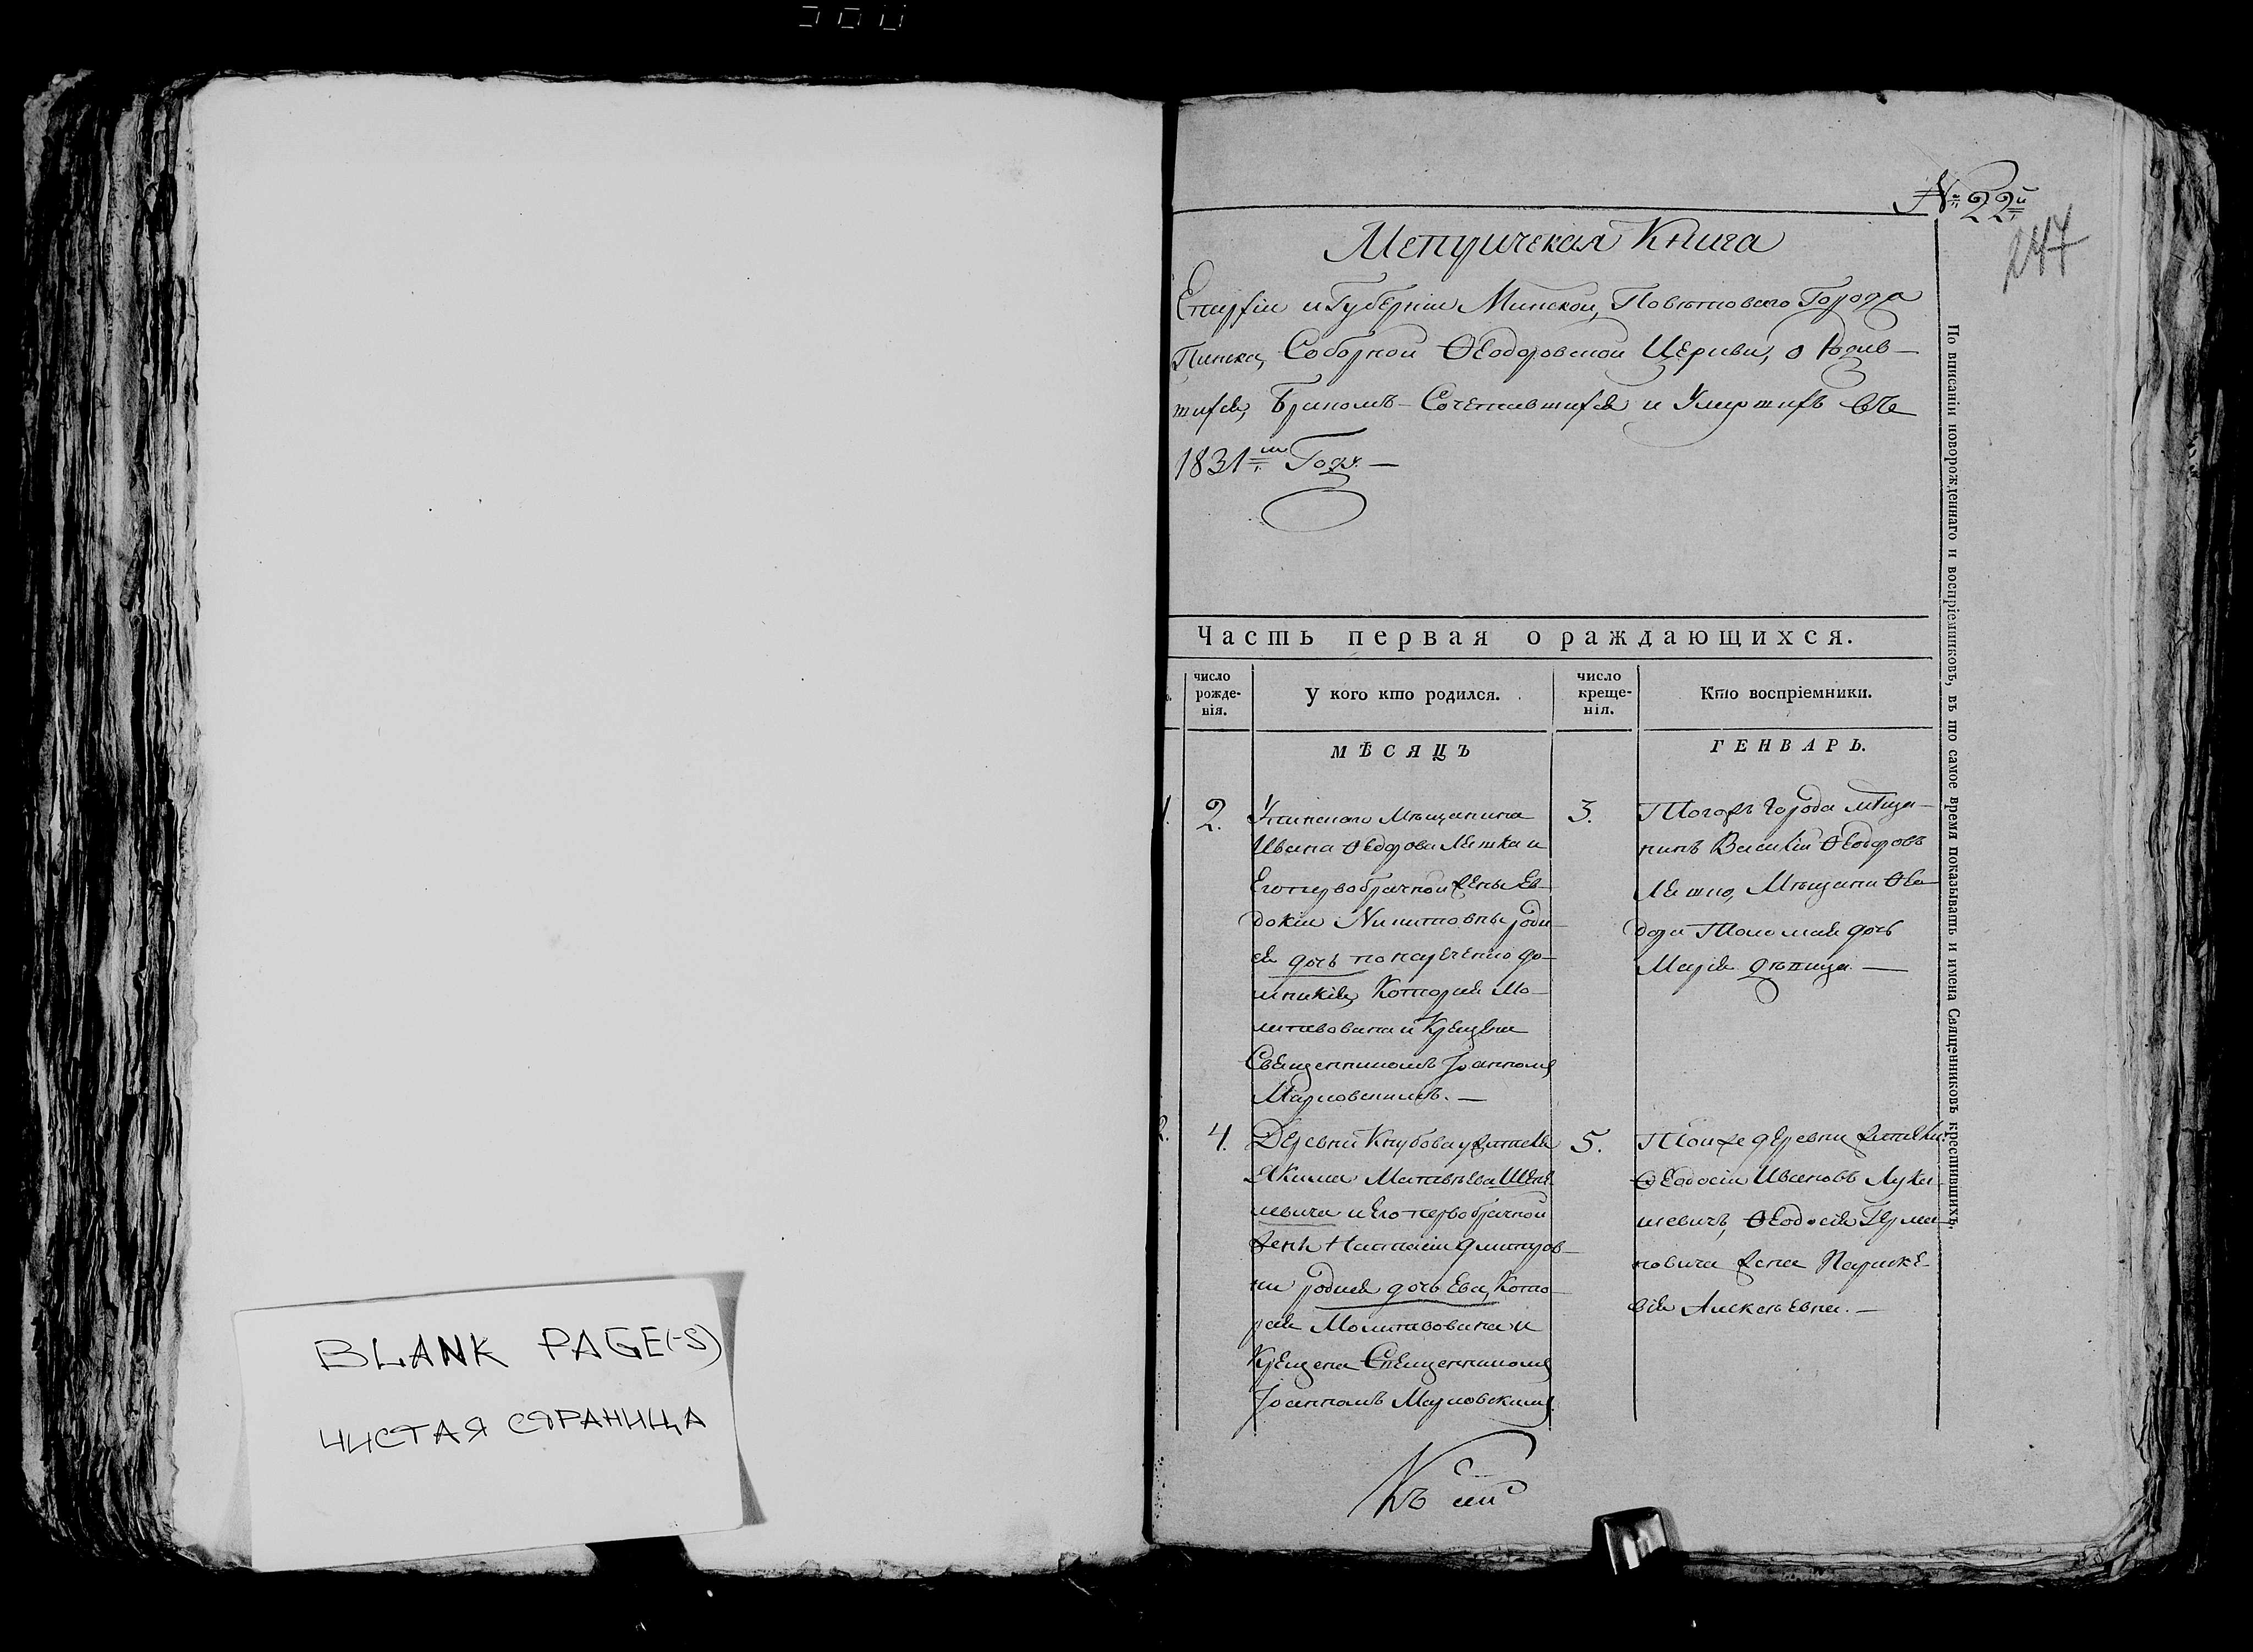 BLANK PAGE(-S)
ЧИСТАЯ СТРАНИЦА
№ 22й
247
Метрическая Книга
Епархіи и Губерніи Минской, Повѣтоваго Города
Пинска, Соборной Ѳеодоровской Церкви, о Родив-
шихся, Бракомъ-Сочетавшихся и Умершихъ въ
1831м Году. —
Часть первая о раждающихся.
число рожде-нія.
У кого кто родился.
число креще-нія.
Кто воспріемники.
МѢСЯЦЪ
ГЕНВАРЬ.
1.
2.
У Пинскаго Мѣщанина
Ивана Ѳеодорова и
Его первобрачной жены Ев-
докіи Никитовны роди-
ся дочь по нареченію До-
мникія, Которая Мо-
литвована и Крещена
Священникомъ Іоанномъ
Марковскимъ. —
3.
Тогожъ города мѣща-
нинъ Василій Ѳеодоровъ
Мѣщанина Ѳео-
дора дочь
Марія дѣвица. —
2.
4.
Деревни Кнубова у жителя
Якима Матвѣева
и его первобрачной
жены Наталіи Дмитров-
ни родися дочь Ева, Кото-
рая Молитвована и
Крещена Священникомъ
Іоанномъ Марковскимъ.
5.
Той же деревни жители
Ѳеодосій Ивановъ Лука-
шевичъ, Ѳеодосія Герма-
новича жена Параске-
вія Алексѣевна. —
По вписаніи новорожденнаго и воспріемниковъ, въ то самое время показывать и имена Священниковъ крестившихъ.